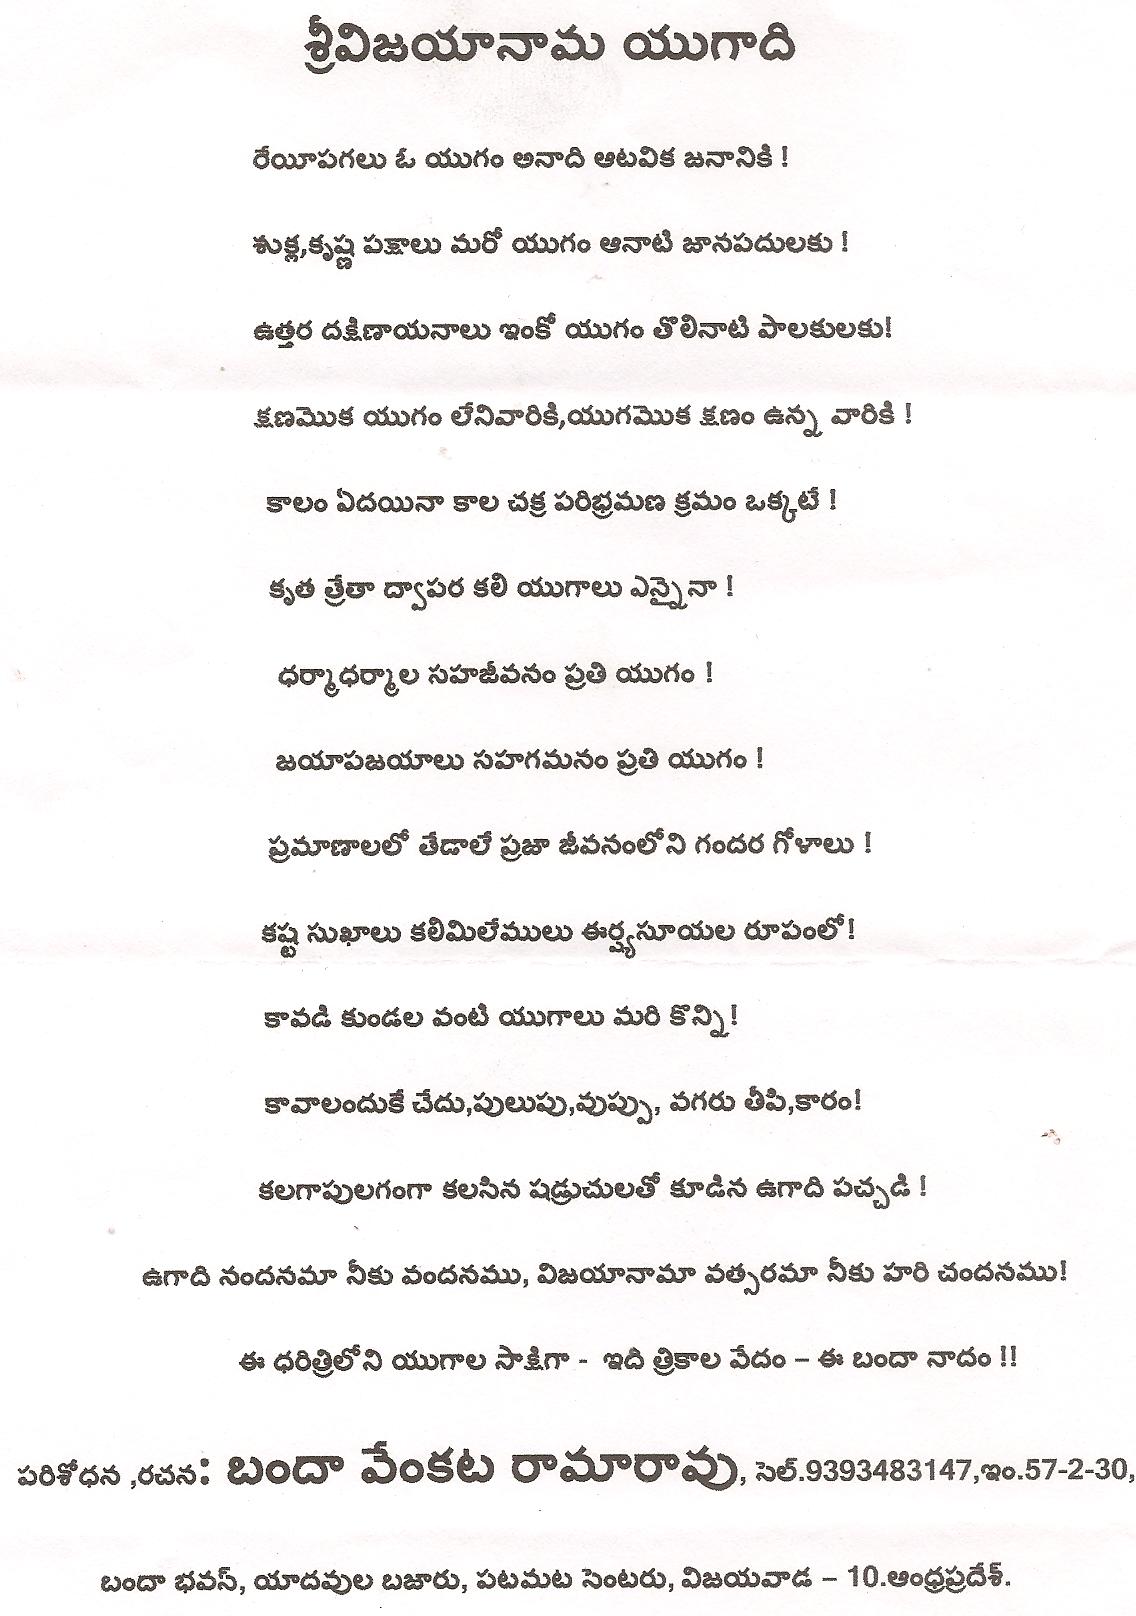 శ్రీవిజయానామ యుగాది
రేయీపగలు ఓ యుగం అనాది ఆటవిక జనానికి !
శుక్ల,కృష్ణ పక్షాలు మరో యుగం ఆనాటి జానపదులకు !
ఉత్తర దక్షిణాయనాలు ఇంకో యుగం తొలినాటి పాలకులకు!
క్షణమొక యుగం లేనివారికి,యుగమొక క్షణం ఉన్న వారికి !
కాలం ఏదయినా కాల చక్ర పరిభ్రమణ క్రమం ఒక్కటే !
కృత త్రేతా ద్వాపర కలి యుగాలు ఎన్నైనా !
ధర్మాధర్మాల సహజీవనం ప్రతి యుగం !
జయాపజయాలు సహగమనం ప్రతి యుగం !
ప్రమాణాలలో తేడాలే ప్రజా జీవనంలోని గందర గోళాలు !
కష్ట సుఖాలు కలిమిలేములు ఈర్ష్యసూయల రూపంలో!
కావడి కుండల వంటి యుగాలు మరి కొన్ని!
కావాలందుకే చేదు,పులుపు,వుప్పు, వగరు తీపి,కారం!
కలగాపులగంగా కలసిన షడ్రుచులతో కూడిన ఉగాది పచ్చడి !
ఉగాది నందనమా నీకు వందనము, విజయానామా వత్సరమా నీకు హరి చందనము!
ఈ ధరిత్రిలోని యుగాల సాక్షిగా - ఇది త్రికాల వేదం – ఈ బందా నాదం !!
పరిశోధన ,రచన: బందా వేంకట రామారావు, సెల్.9393483147,ఇం.57-2-30,
బందా భవస్, యాదవుల బజారు, పటమట సెంటరు, విజయవాడ – 10.ఆంధ్రప్రదేశ్.